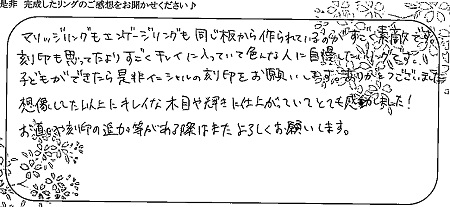 是非 完成したリングのご感想をお聞かせください♪
マリッジリングもエンゲージリングも同じ板から作られているのがすごく素敵です。
刻印も思ってたよりすごくキレイに入っていて色んな人に自慢したいリングです。
子どもができたら是非イニシャルの刻印をお願いします。ありがとうございました。
想像した以上にキレイな木目や輝きに仕上がっていてとても感動しました!
お直しや刻印の追加等がある際はまたよろしくお願いします。